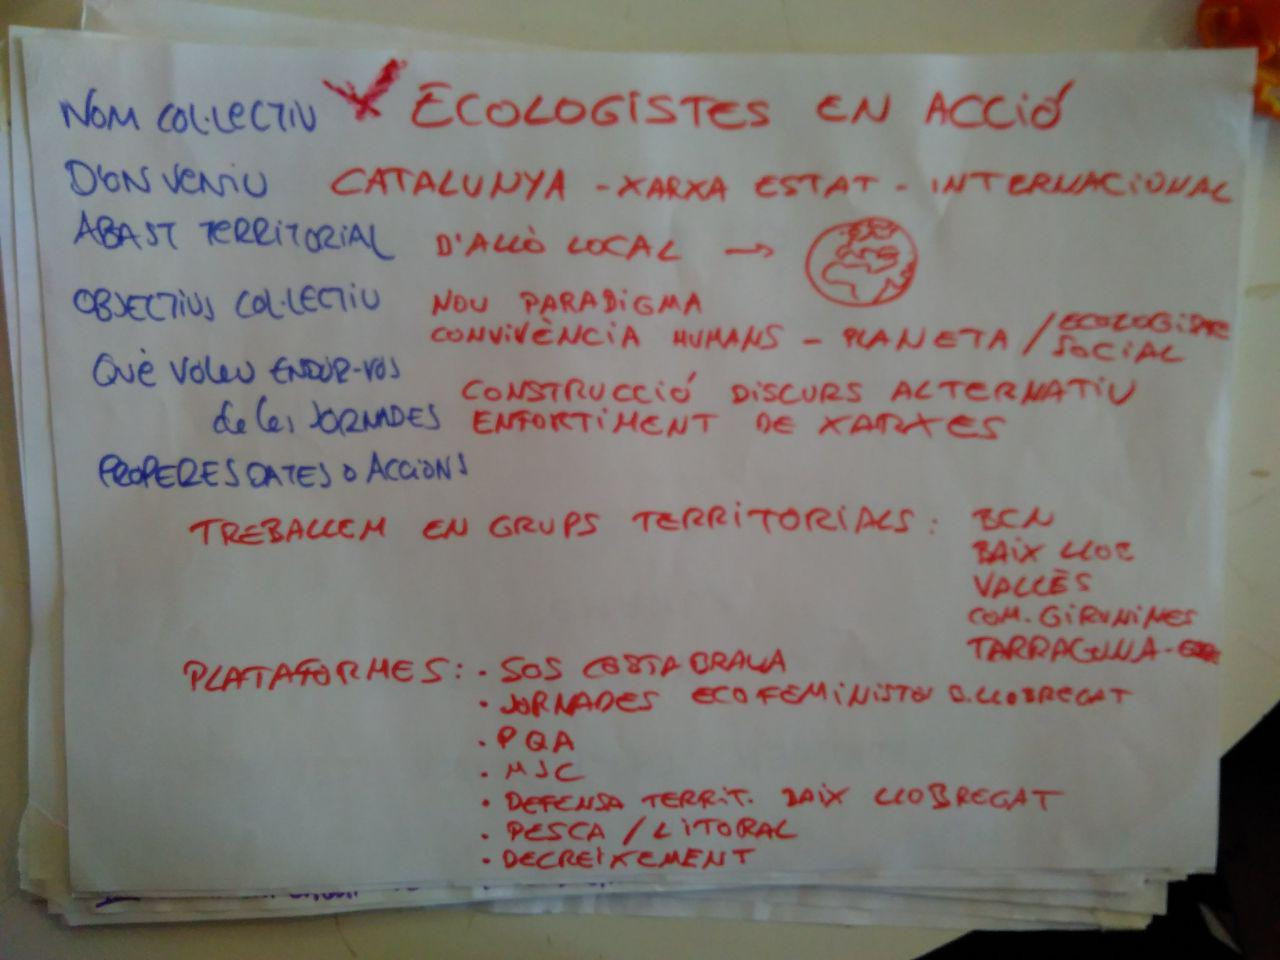 NOM COL·LECTIU ECOLOGISTES EN ACCIÓ
D'ON VENIU CATALUNYA - XARXA ESTAT - INTERNACIONAL
ABAST TERRITORIAL D'ALLÒ LOCAL →
OBJECTIUS COL·LECTIU NOU PARADIGMA
CONVIVÈNCIA HUMANS - PLANETA / ECOLOGISME SOCIAL
QUÈ VOLEU ENDUR-VOS
de les JORNADES
CONSTRUCCIÓ DISCURS ALTERNATIU
ENFORTIMENT DE XARXES
PROPERES DATES O ACCIONS
TREBALLEM EN GRUPS TERRITORIALS: BCN
BAIX LLOB
VALLÈS
COM. GIRONINES
TARRAGONA -
PLATAFORMES: · SOS COSTA BRAVA
· JORNADES ECOFEMINISTES B. LLOBREGAT
· PQA
· MJC
· DEFENSA TERRIT. BAIX LLOBREGAT
· PESCA / LITORAL
· DECREIXEMENT